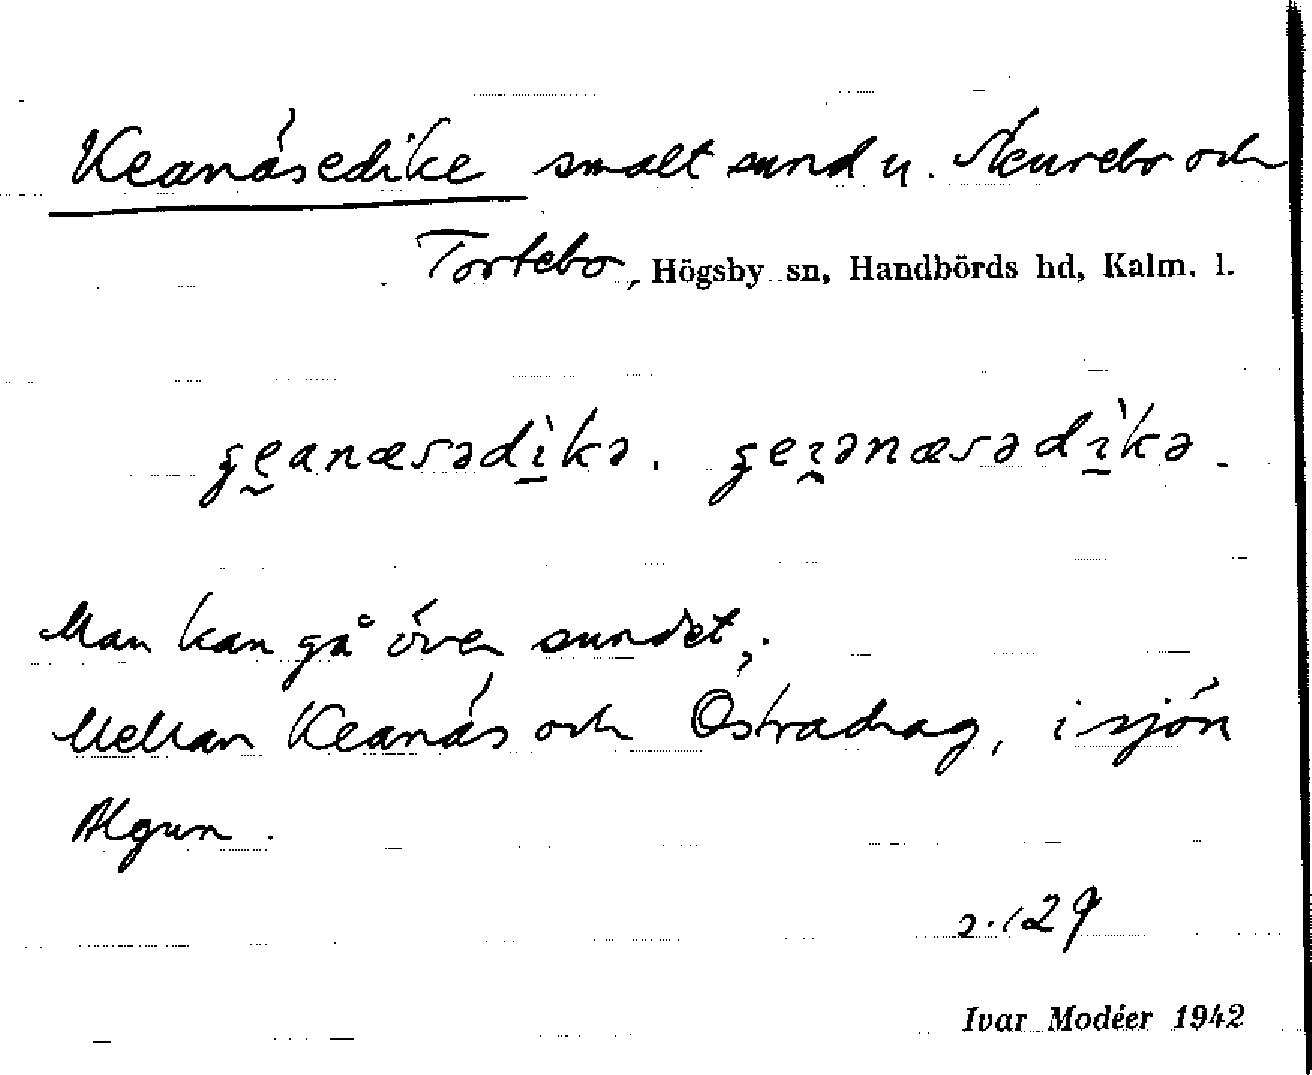 Keanäsedike smalt sund u. Neurebo och
Tortebo, Högsby sn, Handbörds hd, Kalm. l.
ge̮anæsədì̱kə. geı̯ənæsədı̱̀kə.
Man kan gå över sundet;
Mellan Keanäs och Östradrag, i sjön
Algun.
s. 129
Ivar Modéer 1942